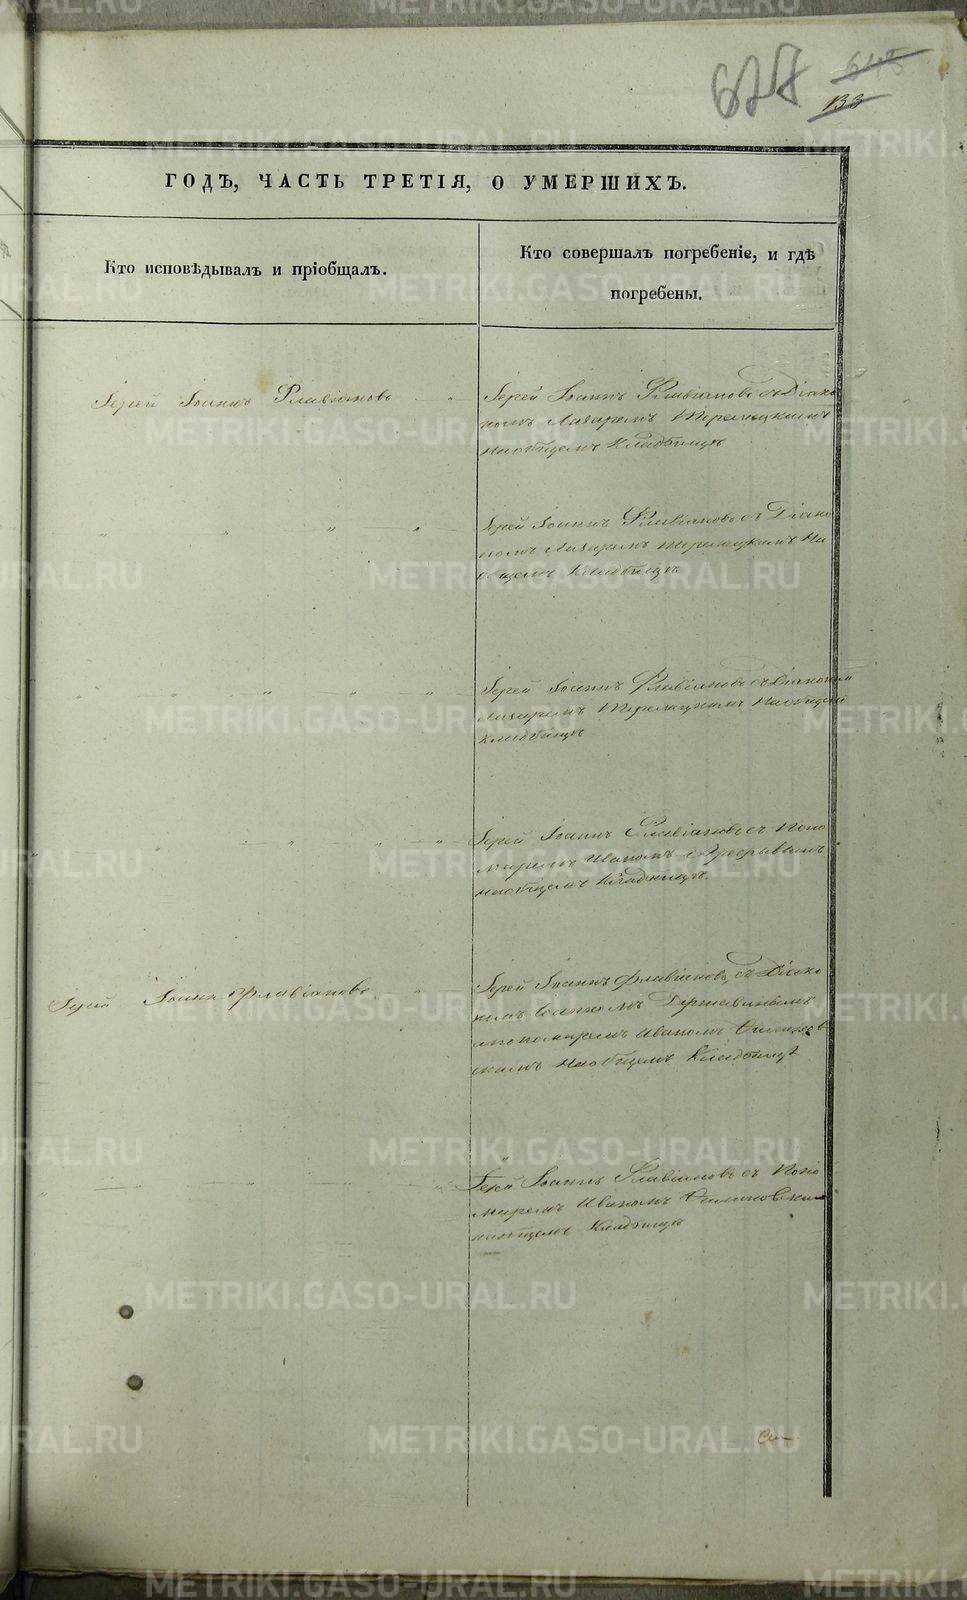 628 645
133
ГОДЪ, ЧАСТЬ ТРЕТІЯ, О УМЕРШИХЪ.
Кто исповѣдывалъ и пріобщалъ.
Кто совершалъ погребеніе, и гдѣ
погребены.
Іерей Іоаннъ Флавіановъ
Іерей Іоаннъ Флавіановъ съ Діако
номъ Лазаремъ
наобщемъ Кладбищѣ
Іерей Іоаннъ Флавіановъ съ Діако
номъ Лазаремъ На
общемъ Кладбищѣ
Іерей Іоаннъ Флавіановъ съ Діакономъ
Лазаремъ Наобщемъ
Кладбищѣ
Іерей Іоаннъ Флавіановъ съ Поно
маремъ Иваномъ
наобщемъ Кладбищѣ.
Іерей Іоаннъ Флавіановъ
Іерей Іоаннъ Флавіановъ, съ Діако
номъ Іоанномъ Державинымъ
ипономаремъ Иваномъ
скимъ Наобщемъ Кладбищѣ
Іерей Іоаннъ Флавіановъ съ Поно
маремъ Иваномъ
наобщемъ Кладбищѣ
METRIKI.GASO-URAL.RU